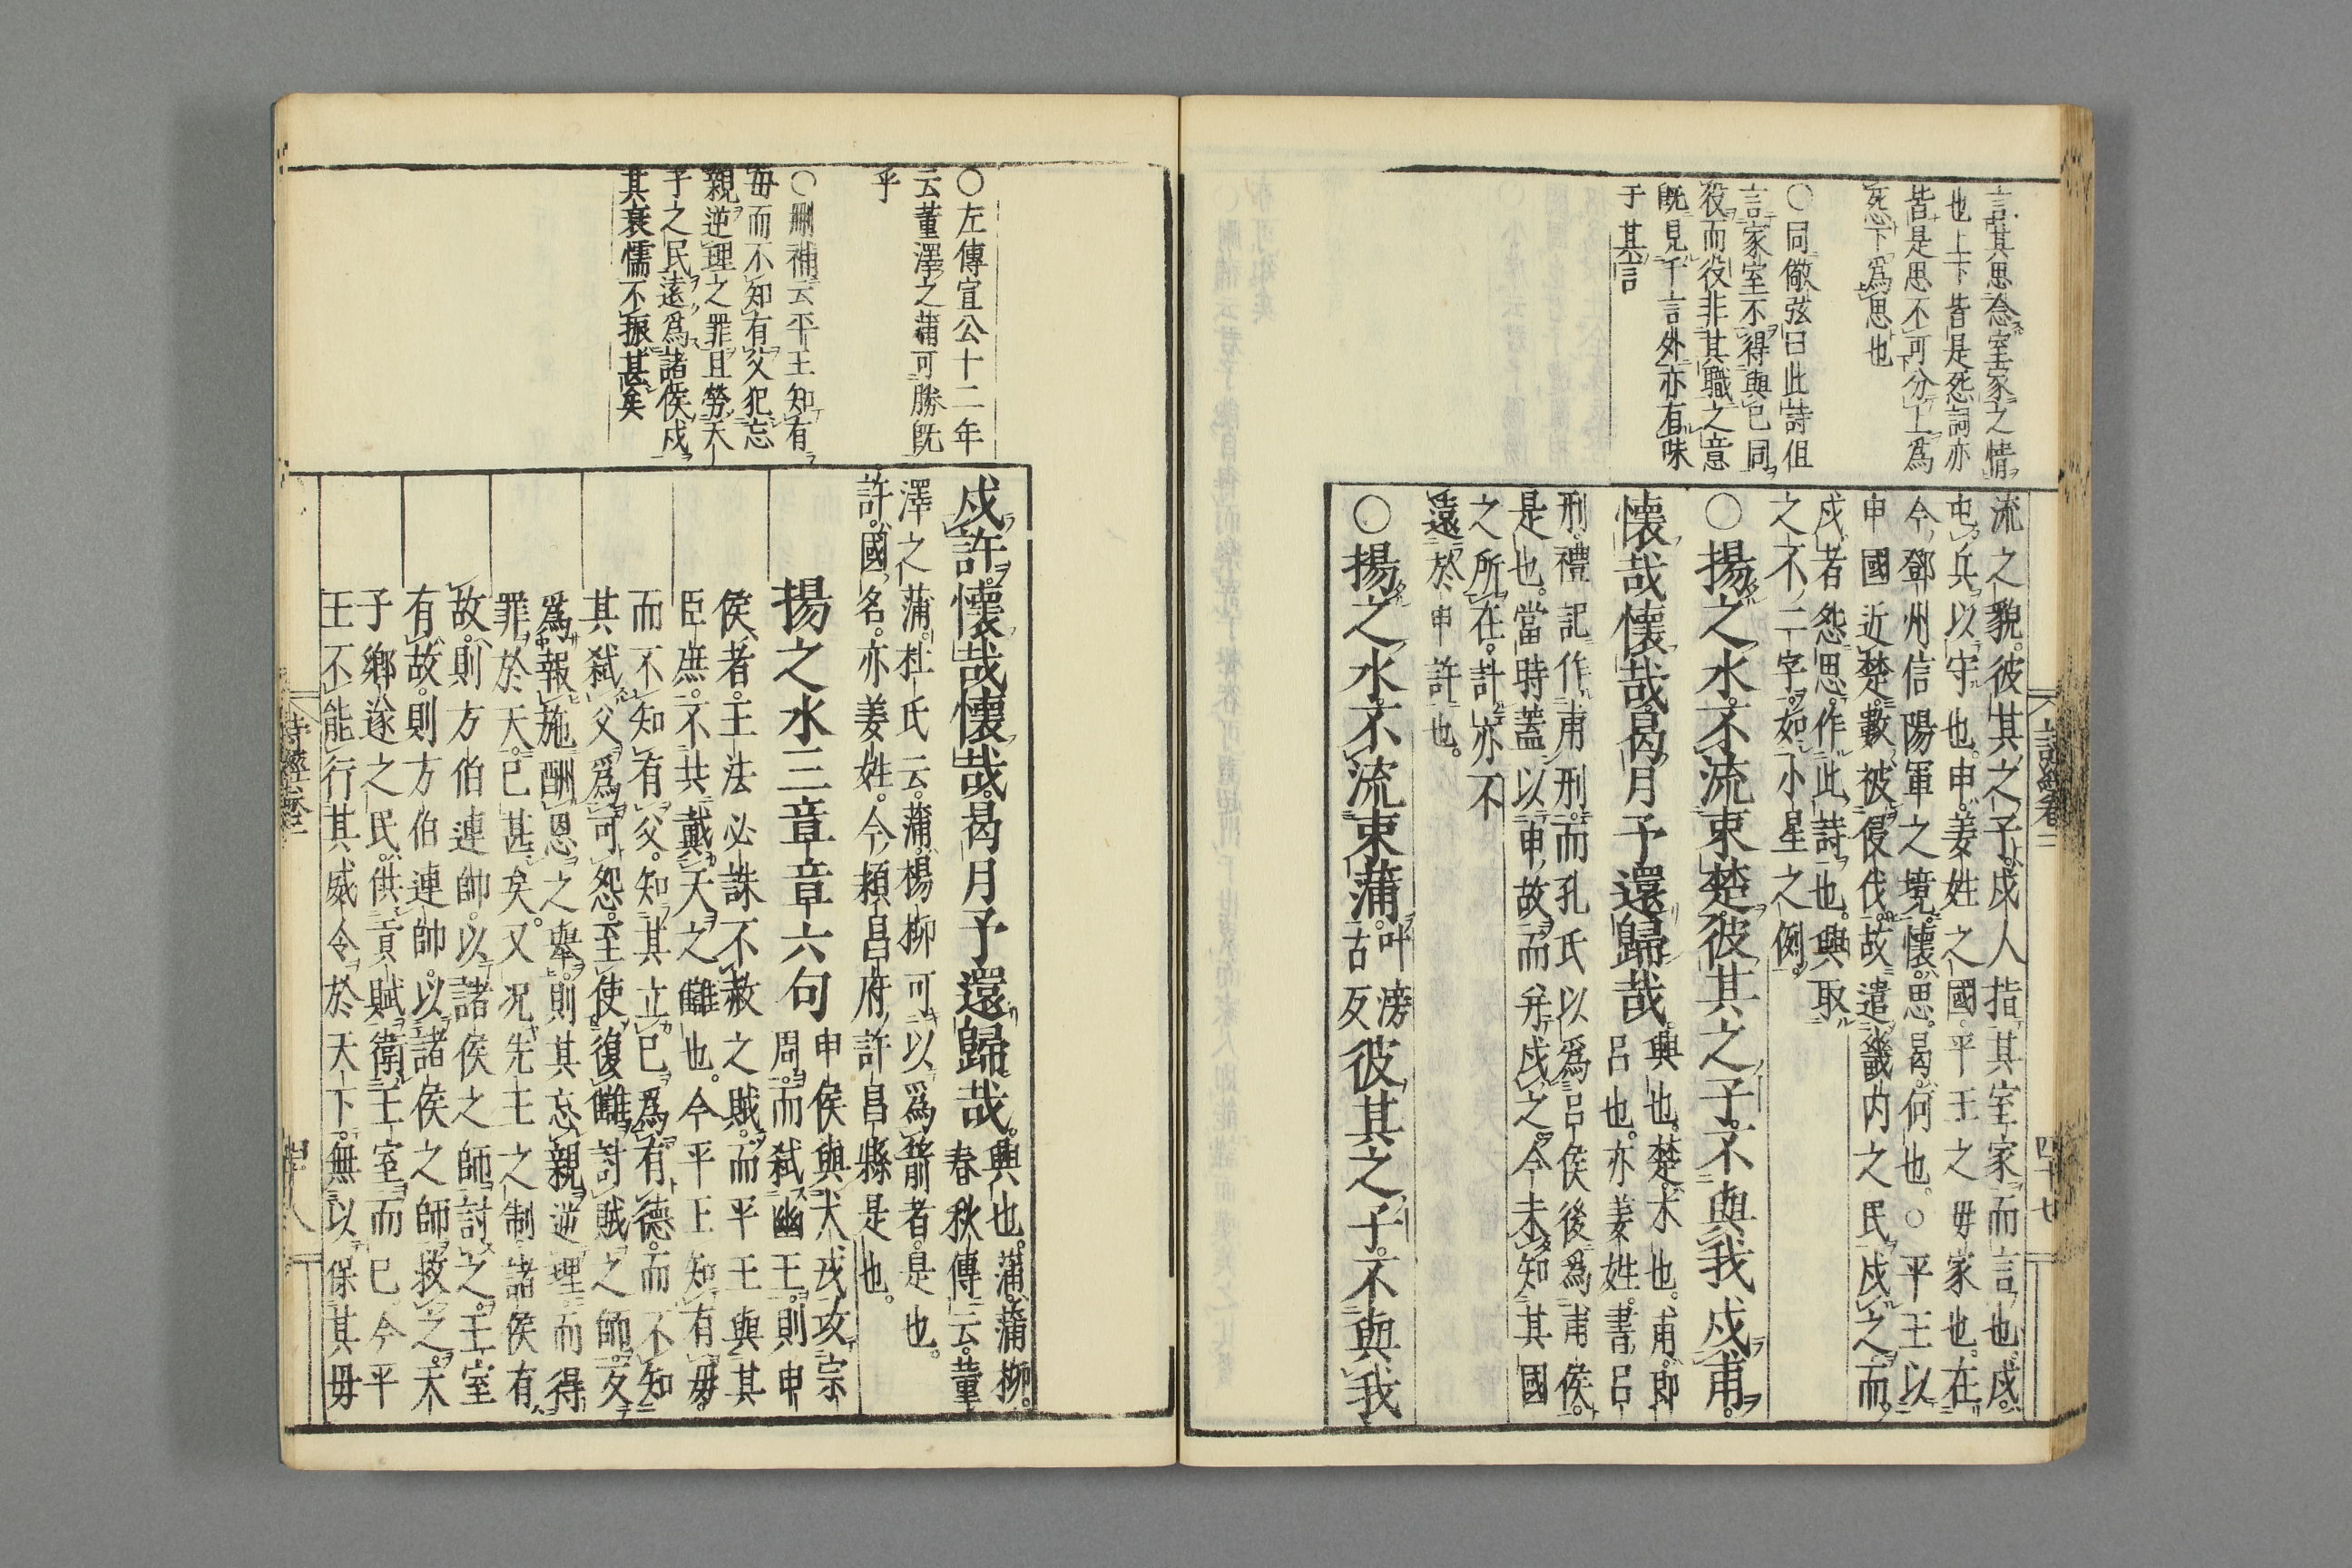 言其思念室家之情
也上下皆是怨詞亦
皆是思不可分上爲
怨下爲思也
○同儆弦曰此詩但
言家室不得與已同
役而役非其職之意
既見千言外亦有味
于其言
流之貌。彼其之子。戍人指其室家而言也。戍。
屯兵以守也。申。姜姓之國。平王之毋家也。在
今鄧州信陽軍之境。懷。思。曷。何也。○平王以
申國近楚。數被侵伐。故遣畿内之民戍之。而
戍者怨思。作此詩也。興取
之不二字。如小星之例。
○揚之水。不流束楚。彼其之子。不與我戍甫。
懷哉懷哉。曷月予還歸哉。
興也。楚。木也。甫。即
呂也。亦姜姓。書呂
刑。禮記作甫刑。而孔氏以爲呂侯後爲甫侯。
是也。當時蓋以申故。而幷戍之。今未知其國
之所在。計亦不
遠於申許也。
○揚之水。不流束蒲。
叶滂
古反
彼其之子。不與我
詩經卷二
四十七
○左傳宣公十二年
云董澤之蒲可勝既
乎
○刪補云平王知有
毋而不知有父犯忘
親逆理之罪且勞天
子之民遠爲諸侯戍
其衰懦不振甚矣
戍許。懷哉懷哉。曷月予還歸哉。
興也。蒲。蒲柳。
春秋傳云。董
澤之蒲。杜氏云。蒲。楊柳可以爲箭者。是也。
許。國名。亦姜姓。今頴昌府許昌縣是也。
揚之水三章章六句
申侯與犬戎攻宗
周。而弑幽王。則申
侯者。王法必誅不赦之賊。而平王與其
臣庶。不共戴天之讎也。今平王知有毋。
而不知有父。知其立已爲有德。而不知
其弑父爲可怨。至使復讎討賊之師。反
爲報施酬恩之舉。則其忘親逆理。而得
罪於天。已甚矣。又况先王之制。諸侯有
故。則方伯連帥。以諸侯之師討之。王室
有故。則方伯連帥。以諸侯之師救之。天
子鄉遂之民。供貢賦衛王室而已。今平
王不能行其威令於天下。無以保其毋
詩經卷二
四十八